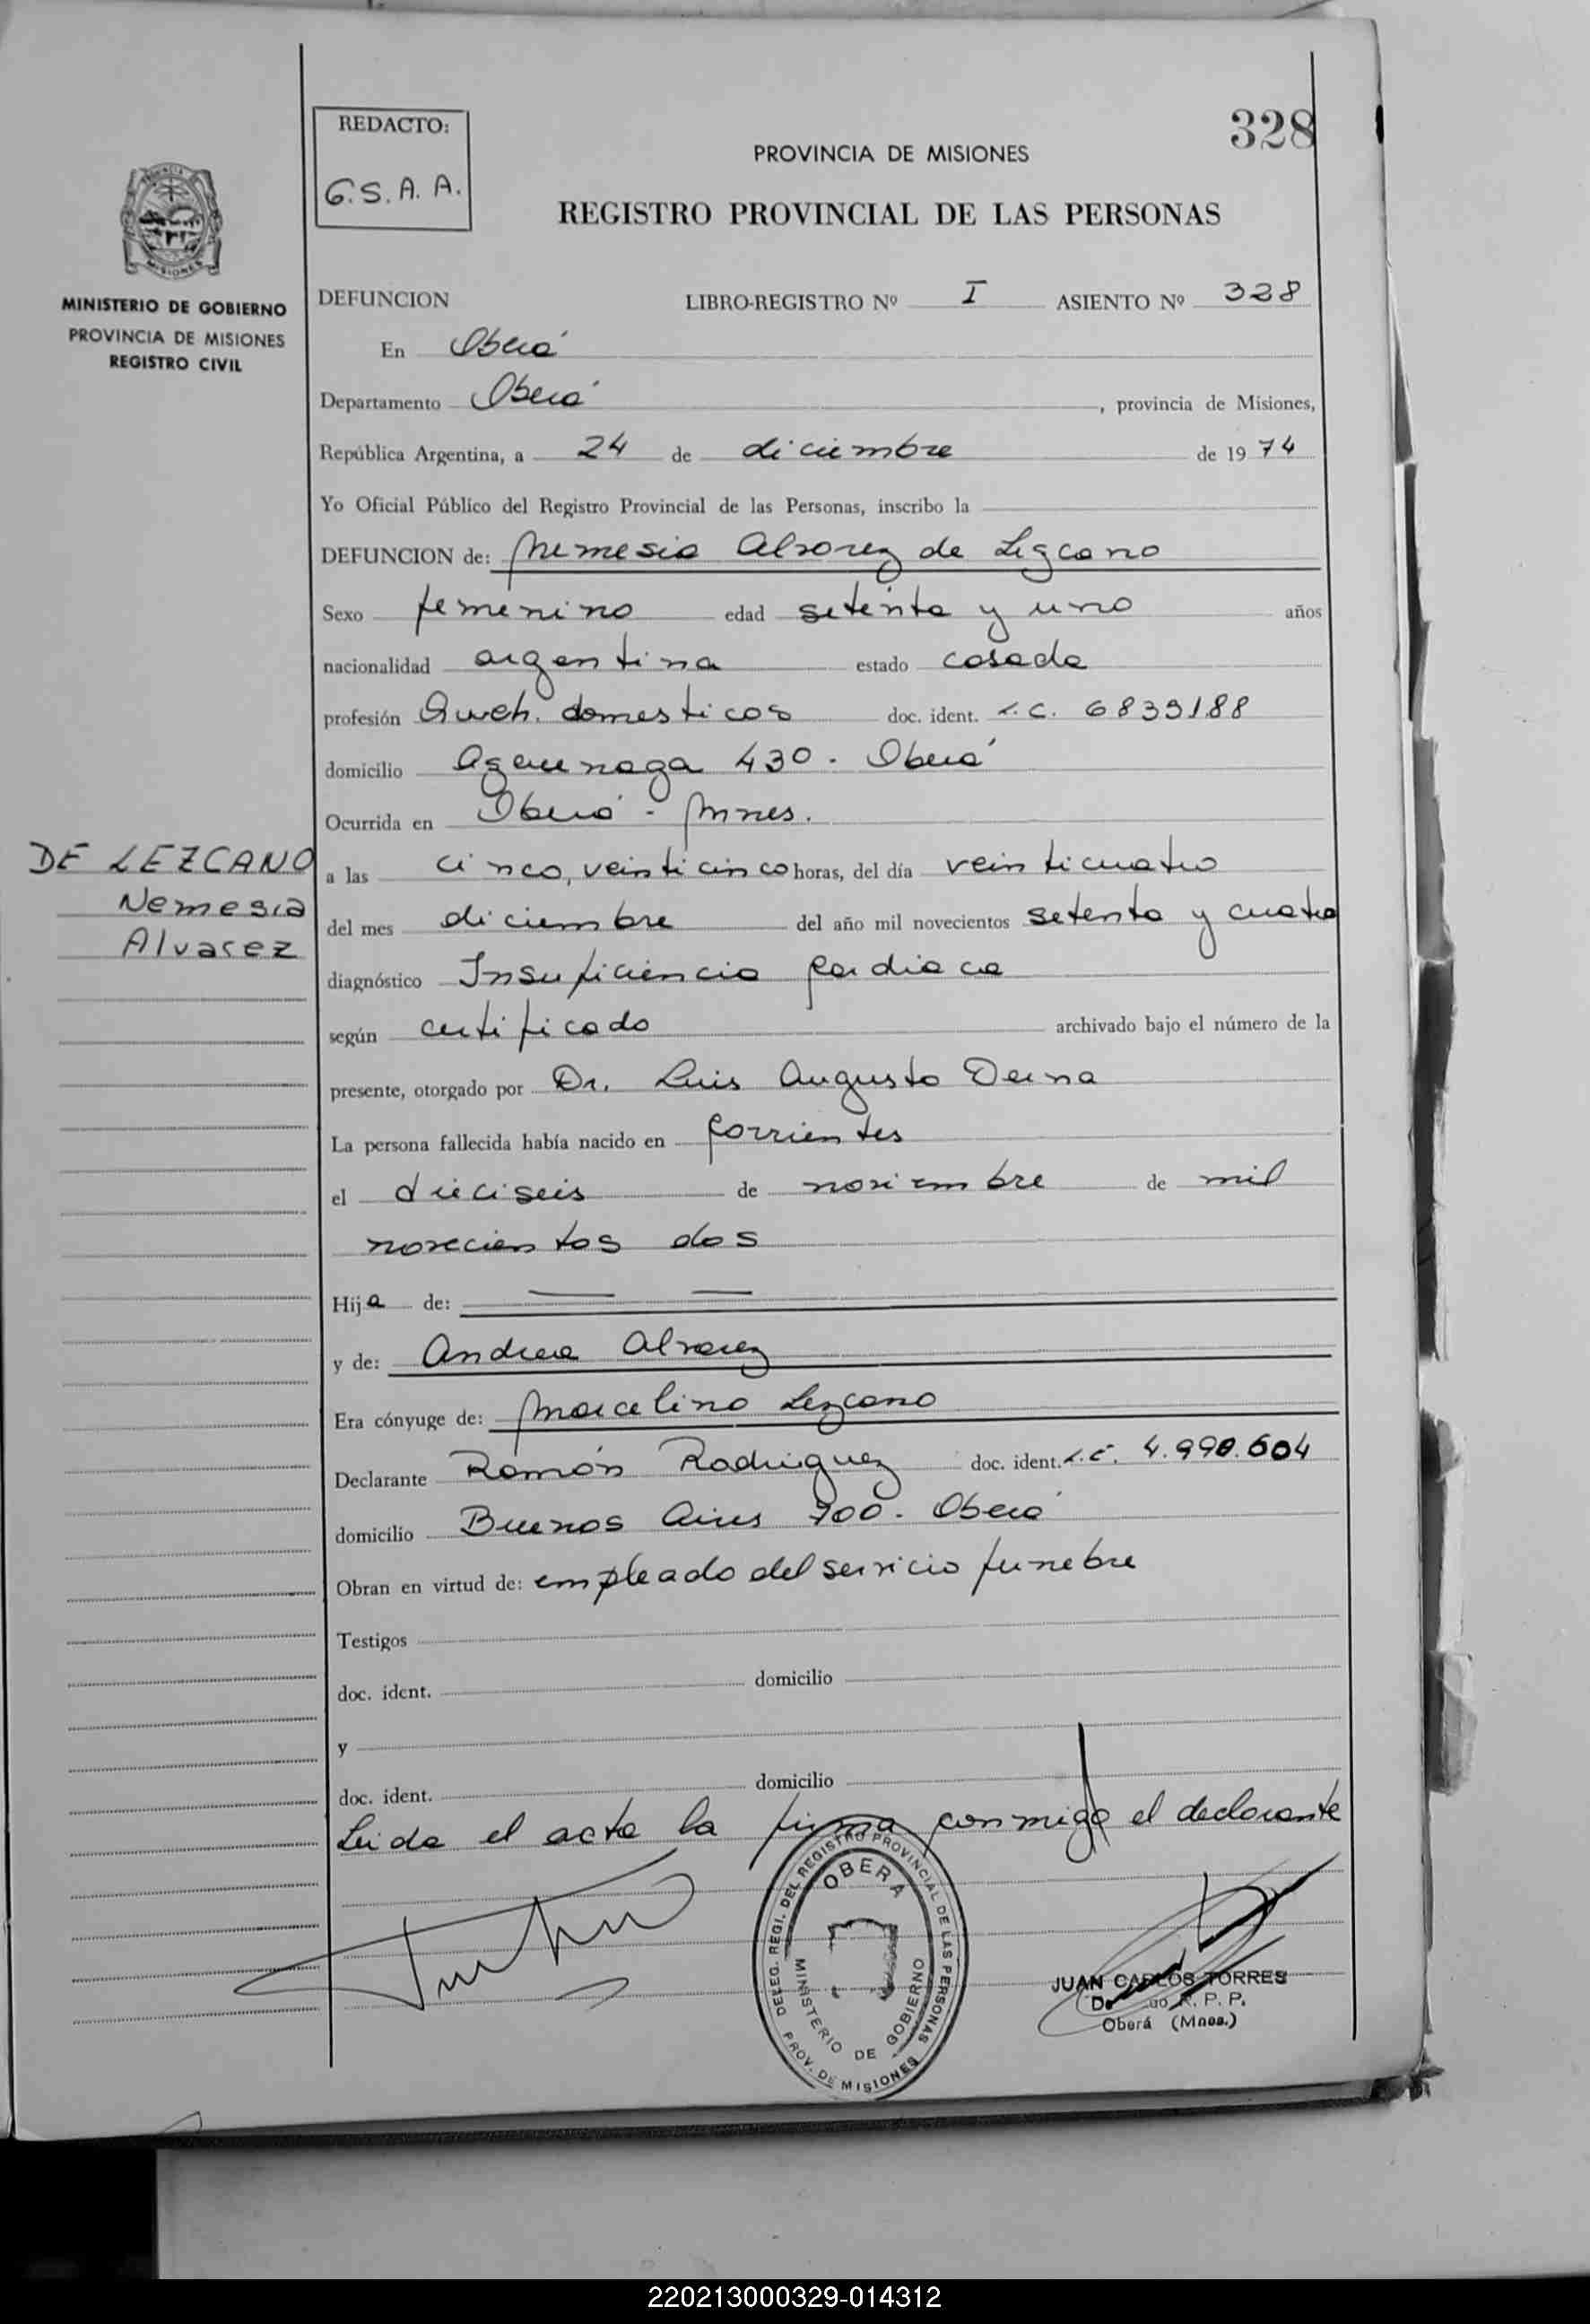 328
REDACTO:
G.S.A.A.
PROVINCIA DE MISIONES
REGISTRO PROVINCIAL DE LAS PERSONAS
MISIONES
MINISTERIO DE GOBIERNO
PROVINCIA DE MISIONES
REGISTRO CIVIL
DEFUNCION LIBRO-REGISTRO Nº I ASIENTO Nº 328
En Oberá
Departamento Oberá, provincia de Misiones,
República Argentina, a 24 de diciembre de 1974
Yo Oficial Público del Registro Provincial de las Personas, inscribo la
DEFUNCION de: Nemesia Alvarez de Lezcano
Sexo femenino edad setenta y uno años
nacionalidad argentina estado casada
profesión Queh. domesticos doc. ident. L.C. 6839188
domicilio 430 - Oberá
Ocurrida en Oberá - Mnes.
DE LEZCANO
Nemesia
Alvarez
a las cinco, veinticinco horas, del día veinticuatro
del mes diciembre del año mil novecientos setenta y cuatro
diagnóstico Insuficiencia Cardiaca
según certificado archivado bajo el número de la
presente, otorgado por Dr. Luis Augusto Derna
La persona fallecida había nacido en Corrientes
el dieciseis de noviembre de mil
novecientos dos
Hija de: — —
y de: Andrea Alvarez
Era cónyuge de: Marcelino Lezcano
Declarante Ramón Rodriguez doc. ident. L.E. 4.990.604
domicilio Buenos Aires 900 - Oberá
Obran en virtud de: empleado del servicio funebre
Testigos
doc. ident. domicilio
y
doc. ident. domicilio
Leida el acta la firma conmigo el declarante
DELEG. REGI. DEL REGISTRO PROVINCIAL DE LAS PERSONAS
OBERA
MINISTERIO DE GOBIERNO
PROV. DE MISIONES
JUAN CARLOS TORRES
R. P. P.
Oberá (Mnes.)
220213000329-014312